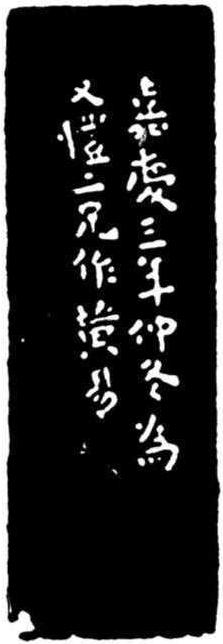 嘉慶三年仲冬為
又愷二兄作黃易